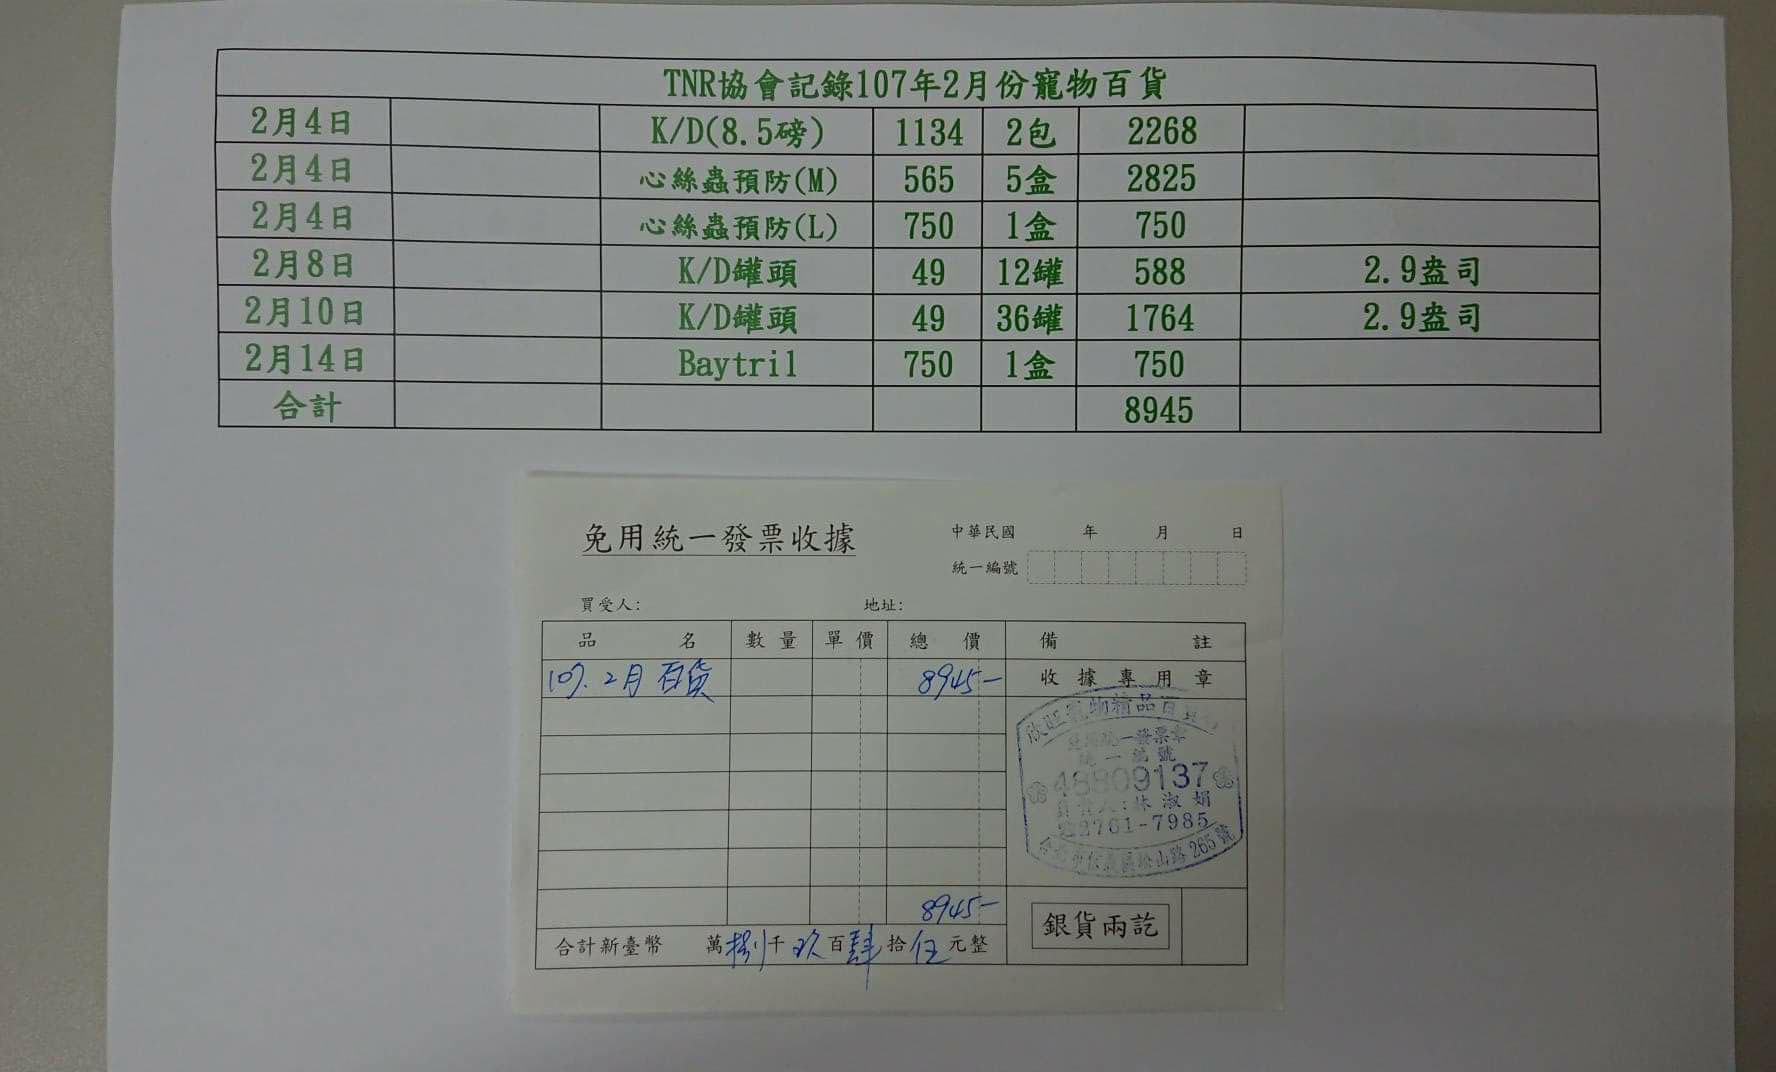 TNR協會記錄107年2月份寵物百貨
2月4日 K/D(8.5磅) 1134 2包 2268
2月4日 心絲蟲預防(M) 565 5盒 2825
2月4日 心絲蟲預防(L) 750 1盒 750
2月8日 K/D罐頭 49 12罐 588 2.9盎司
2月10日 K/D罐頭 49 36罐 1764 2.9盎司
2月14日 Baytril 750 1盒 750
合計 8945
免用統一發票收據
中華民國 年 月 日
統一編號
買受人: 地址:
品名 數量 單價 總價 備註
107.2月 百貨 8945- 收據專用章
寵物精品百貨
統一發票章
統一編號
48809137
負責人:林淑娟
2761-7985
台北市信義區松山路265號
8945-
銀貨兩訖
合計新臺幣 萬捌千玖百肆拾伍元整